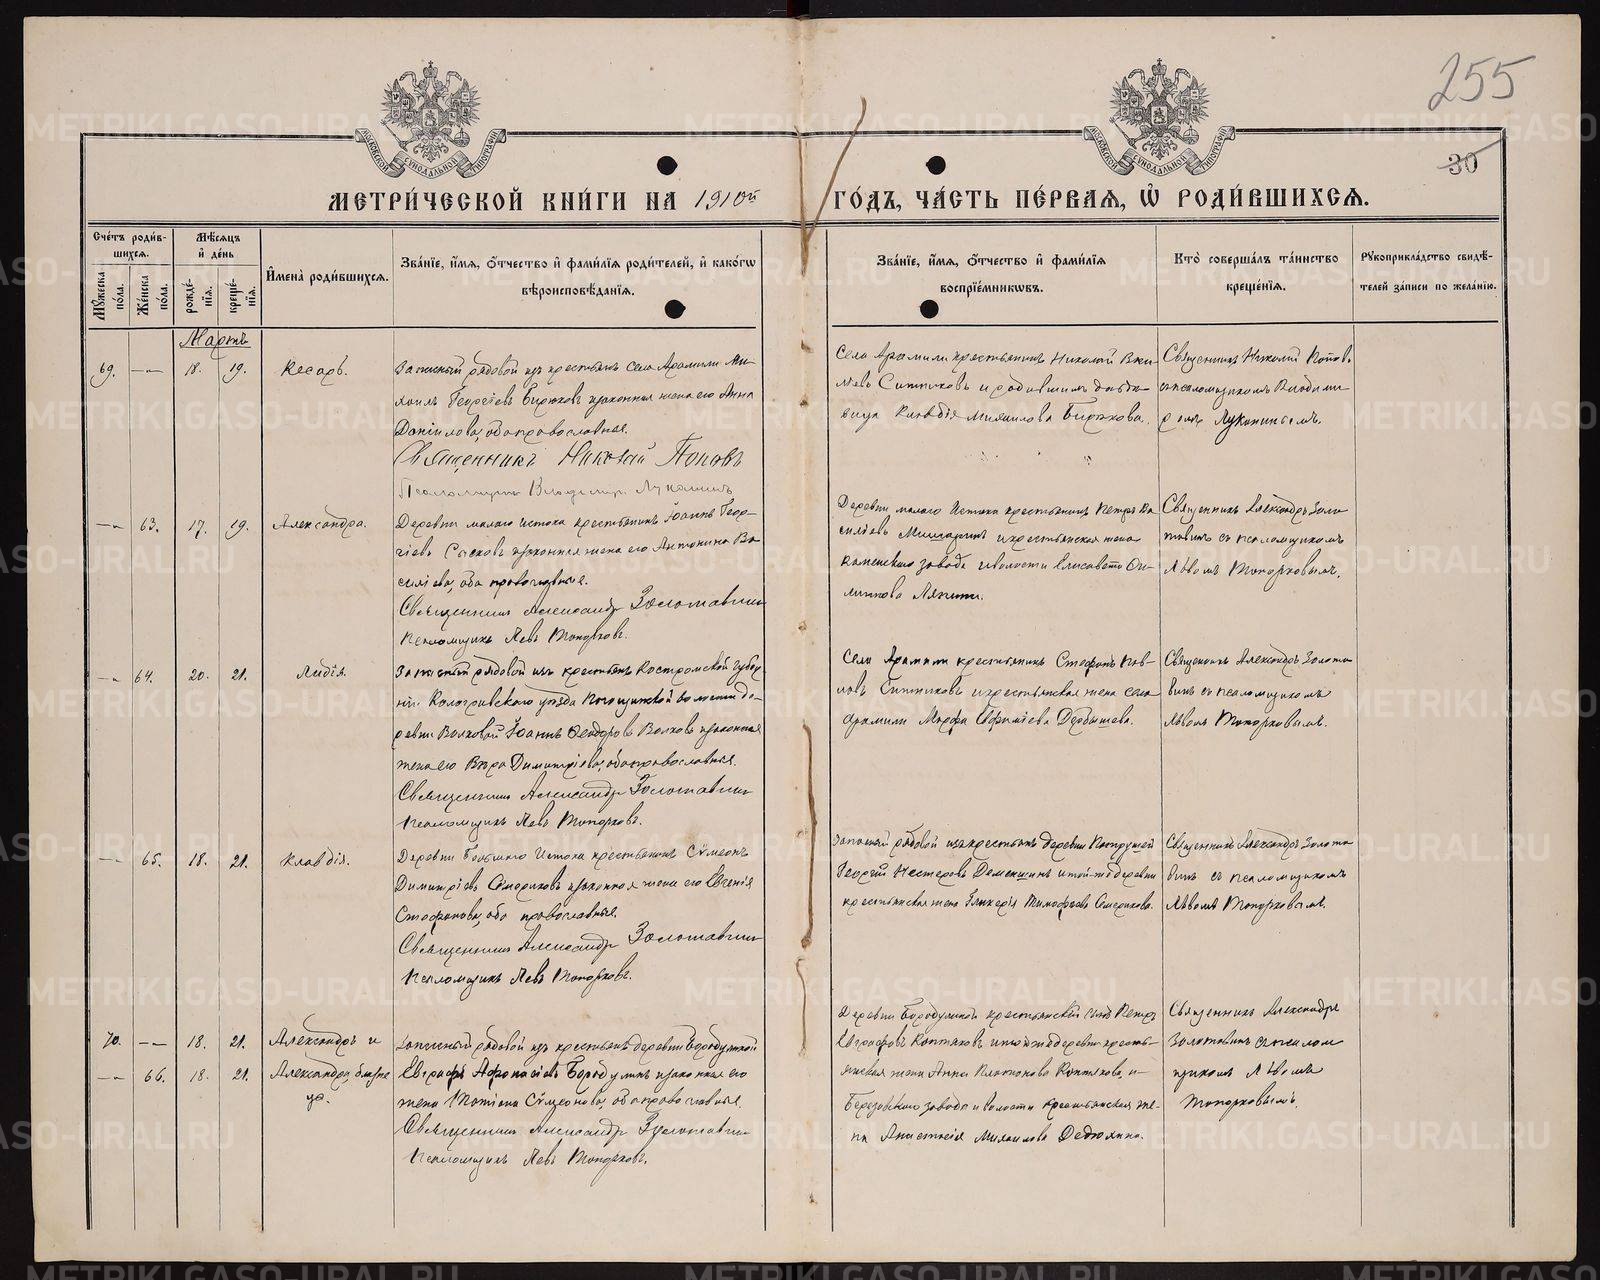 255
30
МОСКОВСКОЙ СѴНОДАЛЬНОЙ ТИПОГРАФІИ
МОСКОВСКОЙ СѴНОДАЛЬНОЙ ТИПОГРАФІИ
МЕТРИ́ЧЕСКОЙ КНИ́ГИ НА 1910й ГО́ДЪ, ЧА́СТЬ ПЕ́РВАѦ, Ѡ҆ РОДИ́ВШИХСѦ.
Сче́тъ роди́в-
шихсѧ.
Мѣ́сѧцъ
и҆ де́нь
Мꙋ́жеска по́ла.
Же́нска по́ла.
рожде́-
нїѧ.
креще́-
нїѧ.
И҆мена̀ роди́вшихсѧ.
Зва́нїе, и҆́мѧ, ѻ҆́тчество и҆ фами́лїѧ роди́телей, и҆ како́гѡ
вѣроисповѣ́данїѧ.
Зва́нїе, и҆́мѧ, ѻ҆́тчество и҆ фами́лїѧ
воспрїе́мникѡвъ.
Кто̀ соверша́лъ та́инство
креще́нїѧ.
Рꙋкоприкла́дство свидѣ́-
телей за́писи по жела́нїю.
Мартъ
69. — 18. 19. Кесарь.
Запасный рядовой изъ крестьянъ села Арамили Ми-
хаилъ Георгіевъ Бирюковъ и законная жена его Анна
Даніилова, оба православные.
Священникъ Николай Поповъ
Псаломщикъ Владимір Луканинъ
Села Арамили крестьянинъ Николай
Ситниковъ и
Клавдія Михаилова Бирюкова.
Священникъ Николай Поповъ
съ псаломщикомъ Владими-
ромъ Луканинымъ.
— 63. 17. 19. Александра.
Деревни малаго Истока крестьянинъ Іоаннъ Геор-
гіевъ и законная жена его Антонина Ва-
силіева, оба православные.
Священникъ Александръ Золотавинъ
Псаломщикъ Левъ Топорковъ.
Деревни малаго Истока крестьянинъ Петръ Ва-
силіевъ и крестьянская жена
Каменскаго завода и волости Елисавета Фи-
липпова
Священникъ Александръ Золо-
тавинъ съ псаломщикомъ
Львомъ Топорковымъ.
— 64. 20. 21. Лидія.
Запасный рядовой изъ крестьянъ Костромской губер-
ніи Кологривскаго уѣзда волости де-
ревни Волковой Іоаннъ Ѳеодоровъ Волковъ и законная
жена его Вѣра Димитріева, оба православные.
Священникъ Александръ Золотавинъ
Псаломщикъ Левъ Топорковъ.
Села Арамили крестьянинъ Стефанъ Пав-
ловъ Ситниковъ и крестьянская жена села
Арамили Марфа Ефиміева Дербышева.
Священникъ Александръ Золота-
винъ съ псаломщикомъ
Львомъ Топорковымъ.
— 65. 18. 21. Клавдія.
Деревни Большаго Истока крестьянинъ Сѵмеонъ
Димитріевъ и законная жена его Евгенія
Стефанова, оба православные.
Священникъ Александръ Золотавинъ
Псаломщикъ Левъ Топорковъ.
Запасный рядовой изъ крестьянъ деревни Патрушей
Георгій Нестеровъ Деменшинъ и той-же деревни
крестьянская жена Гликерія Тимофеева
Священникъ Александръ Золота-
винъ съ псаломщикомъ
Львомъ Топорковымъ.
70. — 18. 21. Александръ и
— 66. 18. 21. Александра, близне-
цы.
Запасный рядовой изъ крестьянъ деревни Бородулиной
Евграфъ Афонасіевъ Бородулинъ и законная его
жена Татіана Сѵмеонова, оба православные.
Священникъ Александръ Золотавинъ
Псаломщикъ Левъ Топорковъ.
Деревни Бородулиной крестьянскій сынъ Петръ
Евграфовъ Коптяковъ и той-же деревни кресть-
янская жена Анна Платонова Коптякова, и
Березовскаго завода и волости крестьянская же-
на Анастасія Михаилова Дедюхина.
Священникъ Александръ
Золотавинъ съ псалом-
щикомъ Львомъ
Топорковымъ.
METRIKI.GASO-URAL.RU